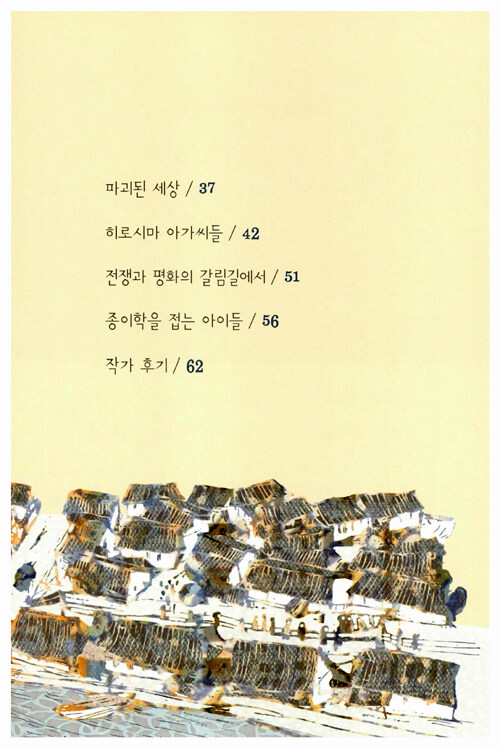 파괴된 세상 / 37
히로시마 아가씨들 / 42
전쟁과 평화의 갈림길에서 / 51
종이학을 접는 아이들 / 56
작가 후기 / 62